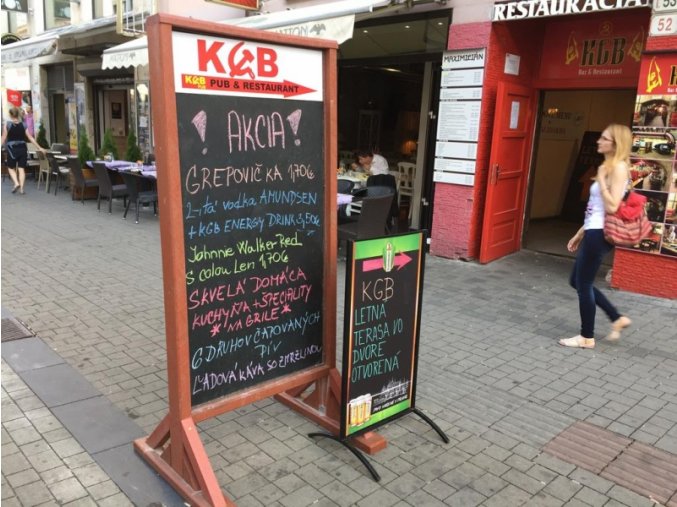 RESTAURÁCIA
52
KGB
Bar & Restaurant
MAXIMILIÁN
KGB
KGB PUB & RESTAURANT
! AKCIA !
GREPOVIČKA 1,70€
+ KGB ENERGY DRINK 3,50€
Johnnie Walker Red
s colou Len 1,70€
SKVELÁ DOMÁCA
KUCHYŇA + ŠPECIALITY
*NA GRILE*
6 DRUHOV ČAPOVANÝCH
PÍV
ĽADOVÁ KÁVA SO ZMRZLINOU
KGB
LETNÁ
TERASA VO
DVORE
OTVORENÁ